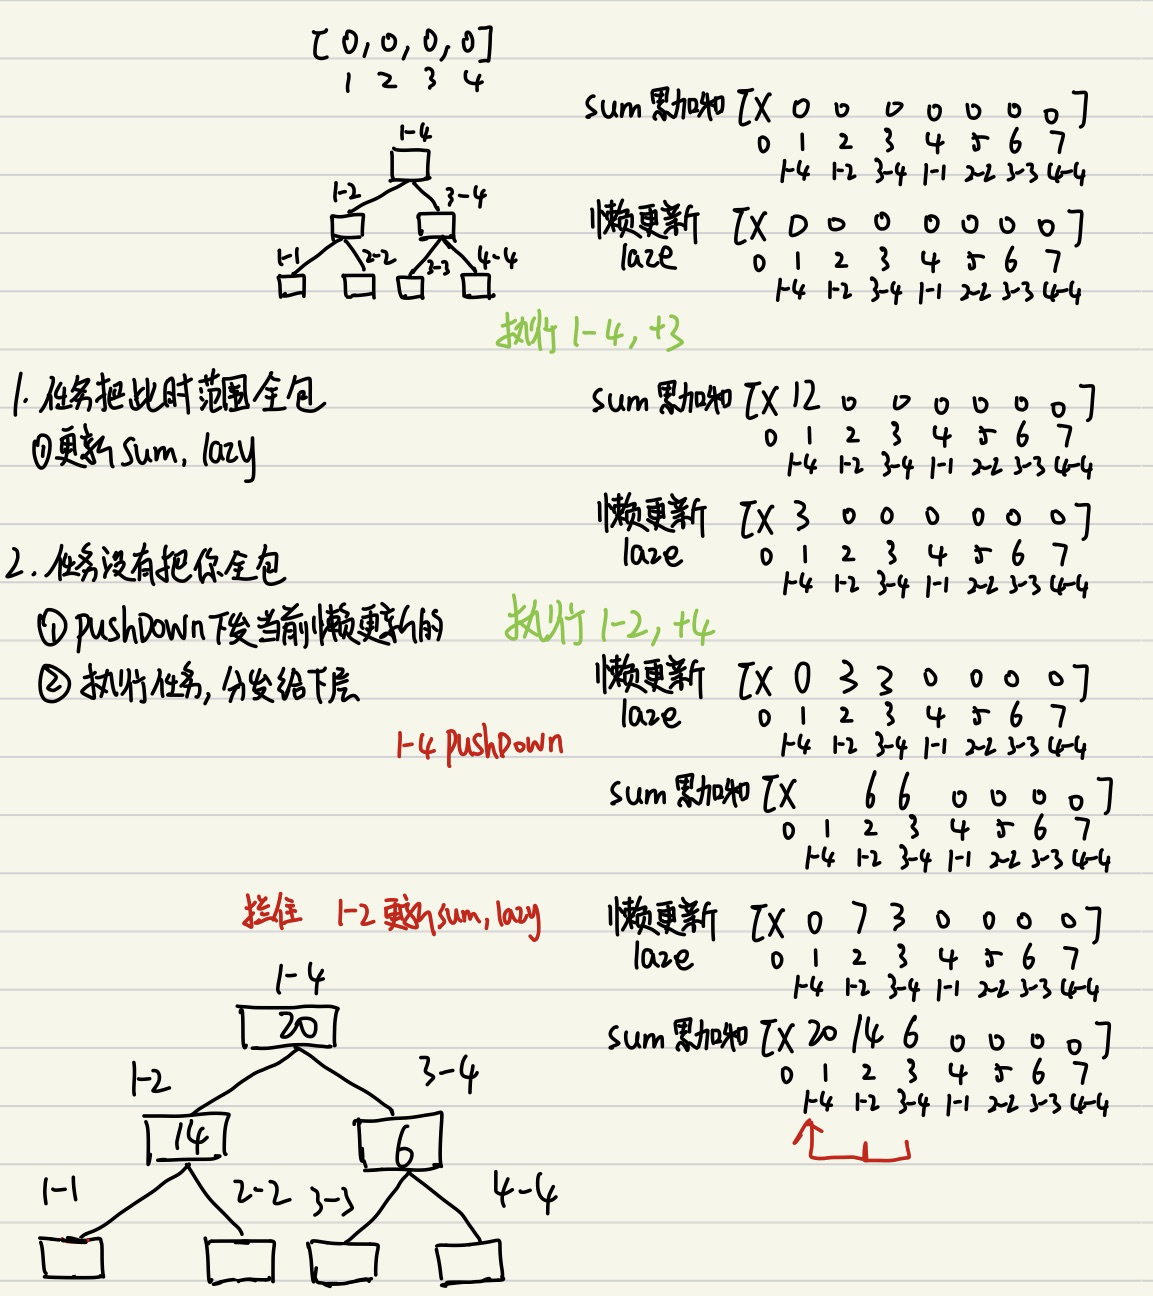 [0,0,0,0]
1 2 3 4
1-4
1-2 3-4
1-1 2-2 3-3 4-4
sum 累加和 [X 0 0 0 0 0 0 0]
0 1 2 3 4 5 6 7
1-4 1-2 3-4 1-1 2-2 3-3 4-4
懒更新 [X 0 0 0 0 0 0 0]
laze 0 1 2 3 4 5 6 7
1-4 1-2 3-4 1-1 2-2 3-3 4-4
执行 1-4, +3
1. 任务把此时范围全包
①更新 sum, lazy
sum 累加和 [X 12 0 0 0 0 0 0]
0 1 2 3 4 5 6 7
1-4 1-2 3-4 1-1 2-2 3-3 4-4
懒更新 [X 3 0 0 0 0 0 0]
laze 0 1 2 3 4 5 6 7
1-4 1-2 3-4 1-1 2-2 3-3 4-4
2. 任务没有把你全包
① pushDown下发当前懒更新的
② 执行任务, 分发给下层
执行 1-2, +4
懒更新 [X 0 3 3 0 0 0 0]
laze 0 1 2 3 4 5 6 7
1-4 1-2 3-4 1-1 2-2 3-3 4-4
1-4 pushDown
sum 累加和 [X 6 6 0 0 0 0]
0 1 2 3 4 5 6 7
1-4 1-2 3-4 1-1 2-2 3-3 4-4
拦住 1-2 更新 sum, lazy
懒更新 [X 0 7 3 0 0 0 0]
laze 0 1 2 3 4 5 6 7
1-4 1-2 3-4 1-1 2-2 3-3 4-4
sum 累加和 [X 20 14 6 0 0 0 0]
0 1 2 3 4 5 6 7
1-4 1-2 3-4 1-1 2-2 3-3 4-4
1-4
20
1-2 3-4
14 6
1-1 2-2 3-3 4-4